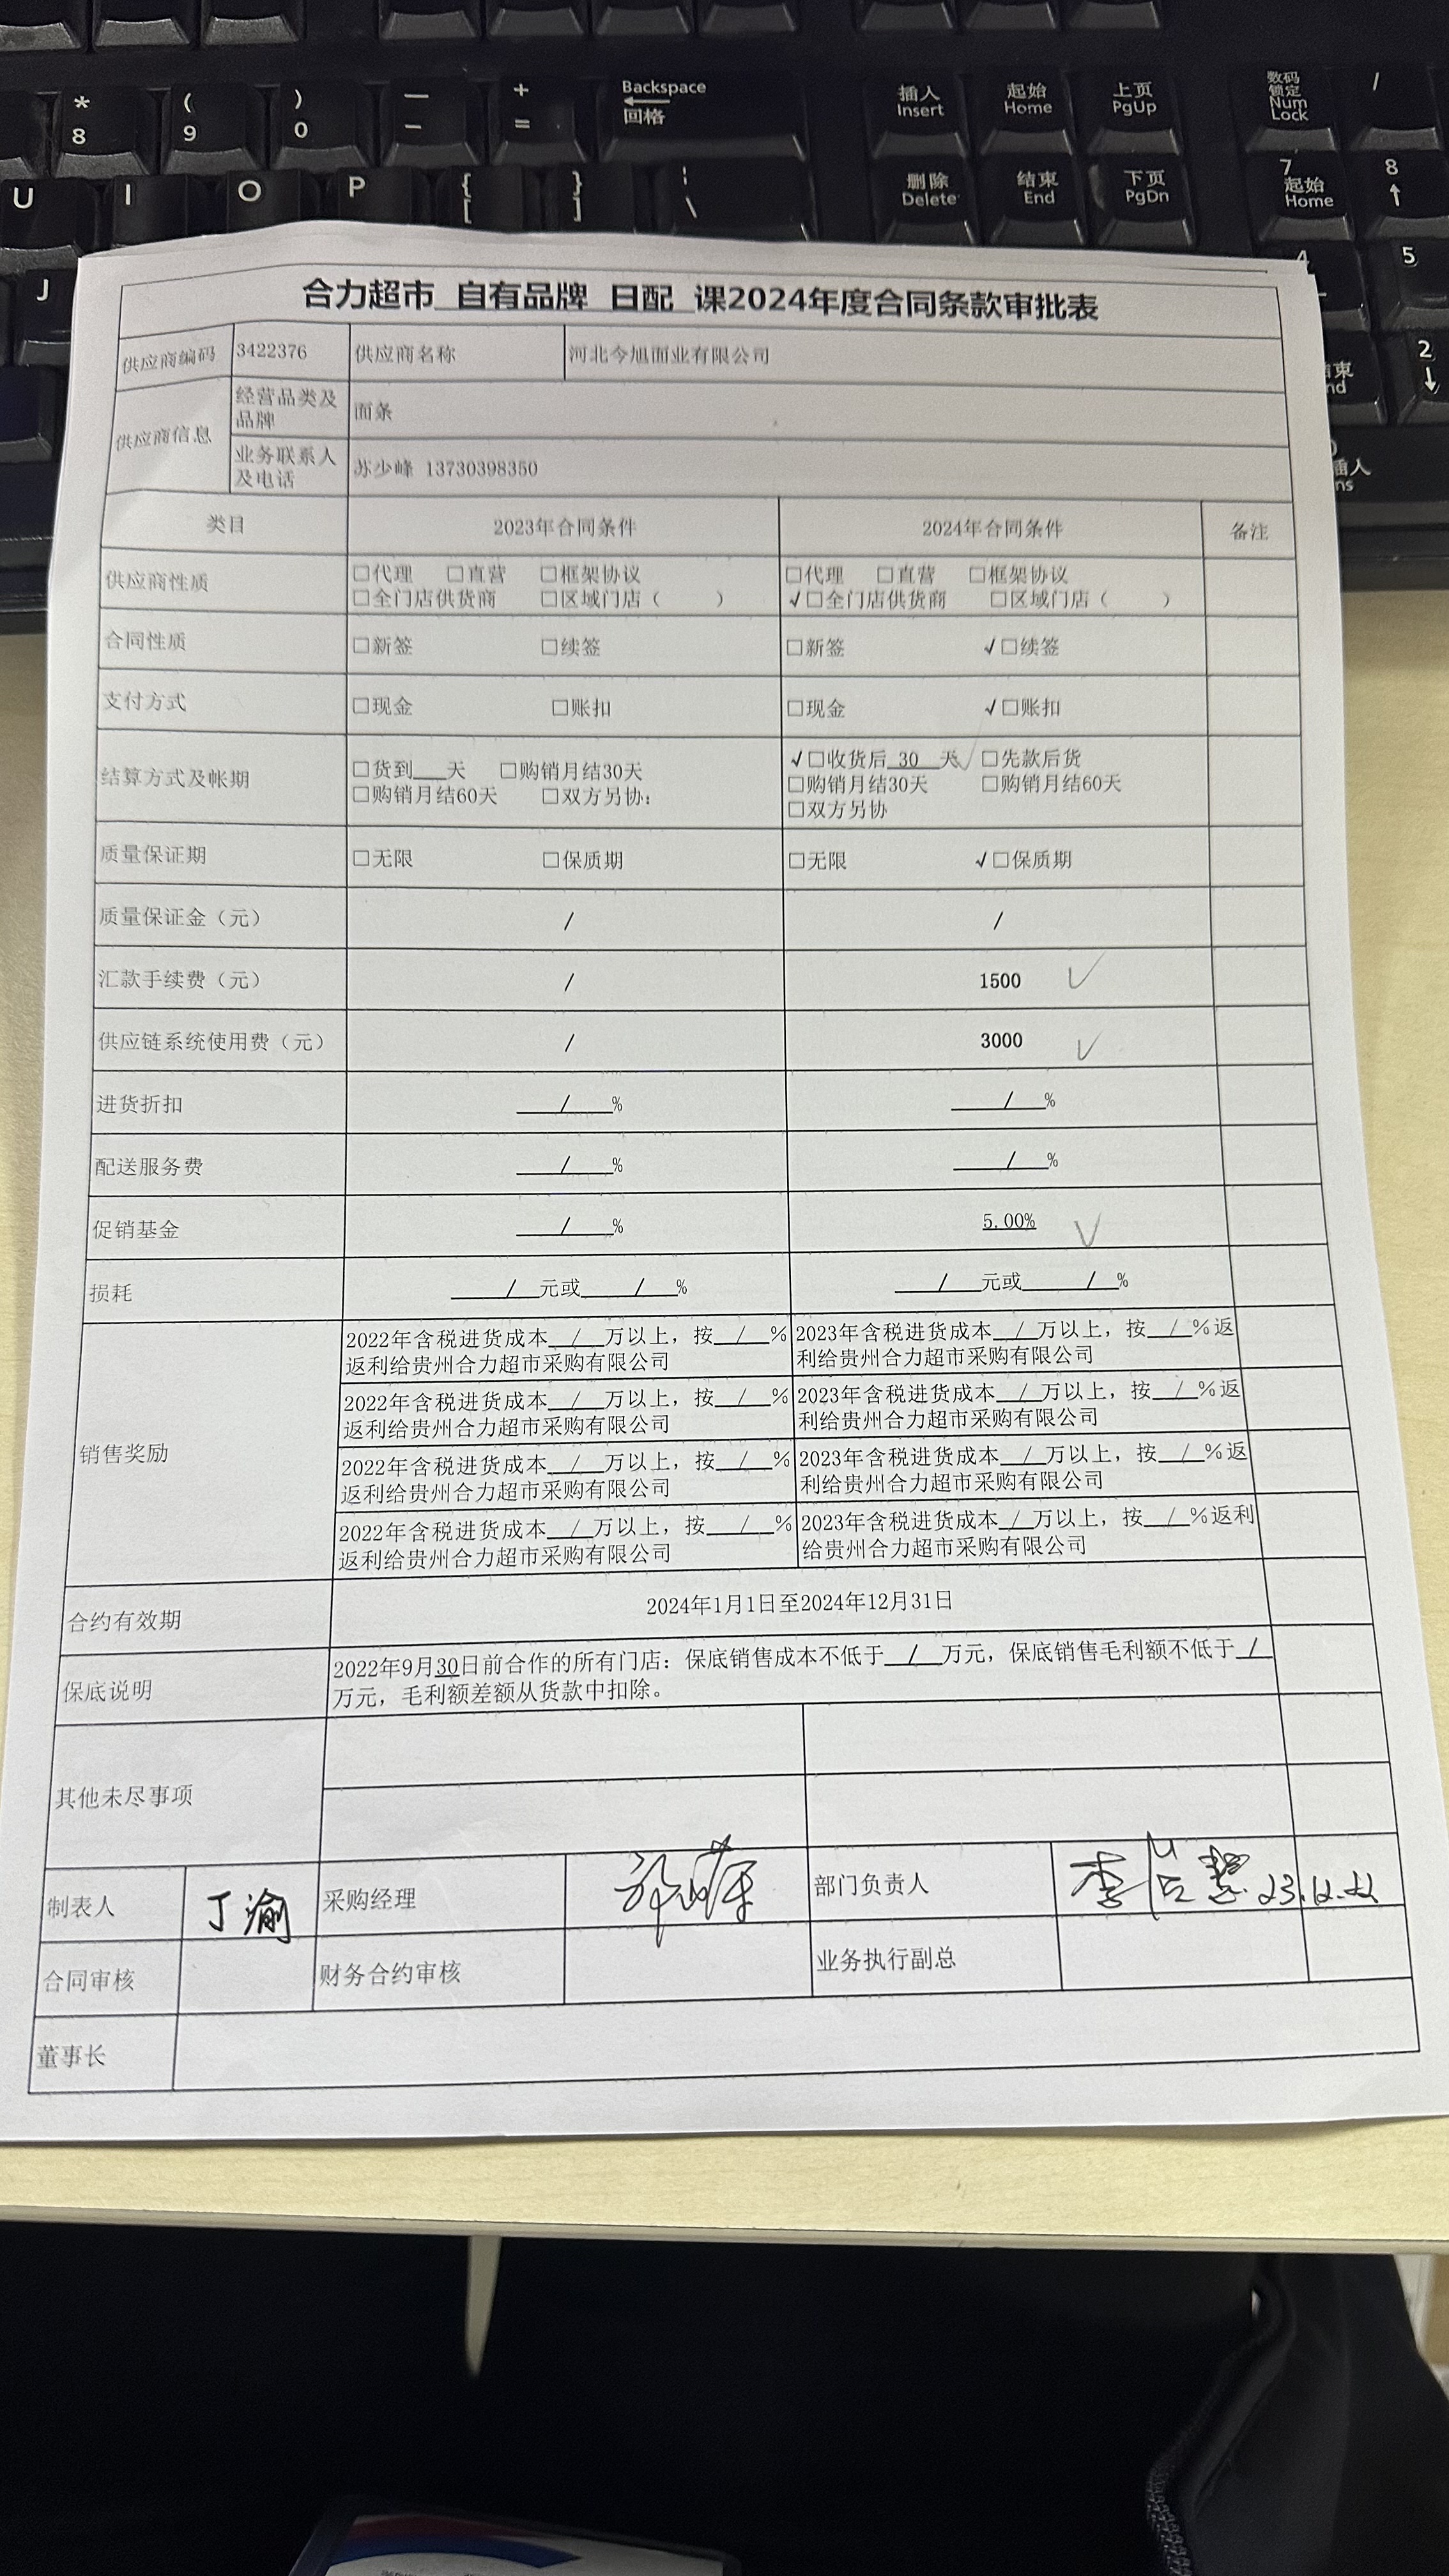 * ( ) — + Backspace 插入 起始 上页 数码 /
8 9 0 - = 回格 Insert Home PgUp 锁定
Num
Lock
U I O P { } ¦ 删除 结束 下页 7 8
[ ] \ Delete End PgDn 起始 ↑
Home
J 4 5
2
↓
合力超市 自有品牌 日配 课2024年度合同条款审批表
供应商编码 3422376 供应商名称 河北今旭面业有限公司
供应商信息 经营品类及品牌 面条
业务联系人及电话 苏少峰 13730398350
类目 2023年合同条件 2024年合同条件 备注
供应商性质 □代理 □直营 □框架协议 □代理 □直营 □框架协议
□全门店供货商 □区域门店（ ） √□全门店供货商 □区域门店（ ）
合同性质 □新签 □续签 □新签 √□续签
支付方式 □现金 □账扣 □现金 √□账扣
结算方式及帐期 □货到___天 □购销月结30天 √□收货后 30 天 □先款后货
□购销月结60天 □双方另协: □购销月结30天 □购销月结60天
□双方另协
质量保证期 □无限 □保质期 □无限 √□保质期
质量保证金（元） / /
汇款手续费（元） / 1500 √
供应链系统使用费（元） / 3000 √
进货折扣 / % / %
配送服务费 / % / %
促销基金 / % 5.00% √
损耗 / 元或 / % / 元或 / %
销售奖励
2022年含税进货成本 / 万以上，按 / % 2023年含税进货成本 / 万以上，按 / %返
返利给贵州合力超市采购有限公司 利给贵州合力超市采购有限公司
2022年含税进货成本 / 万以上，按 / % 2023年含税进货成本 / 万以上，按 / %返
返利给贵州合力超市采购有限公司 利给贵州合力超市采购有限公司
2022年含税进货成本 / 万以上，按 / % 2023年含税进货成本 / 万以上，按 / %返
返利给贵州合力超市采购有限公司 利给贵州合力超市采购有限公司
2022年含税进货成本 / 万以上，按 / % 2023年含税进货成本 / 万以上，按 / %返利
返利给贵州合力超市采购有限公司 给贵州合力超市采购有限公司
合约有效期 2024年1月1日至2024年12月31日
保底说明 2022年9月30日前合作的所有门店：保底销售成本不低于 / 万元，保底销售毛利额不低于 /
万元，毛利额差额从货款中扣除。
其他未尽事项
制表人 丁渝 采购经理 部门负责人 李
合同审核 财务合约审核 业务执行副总
董事长